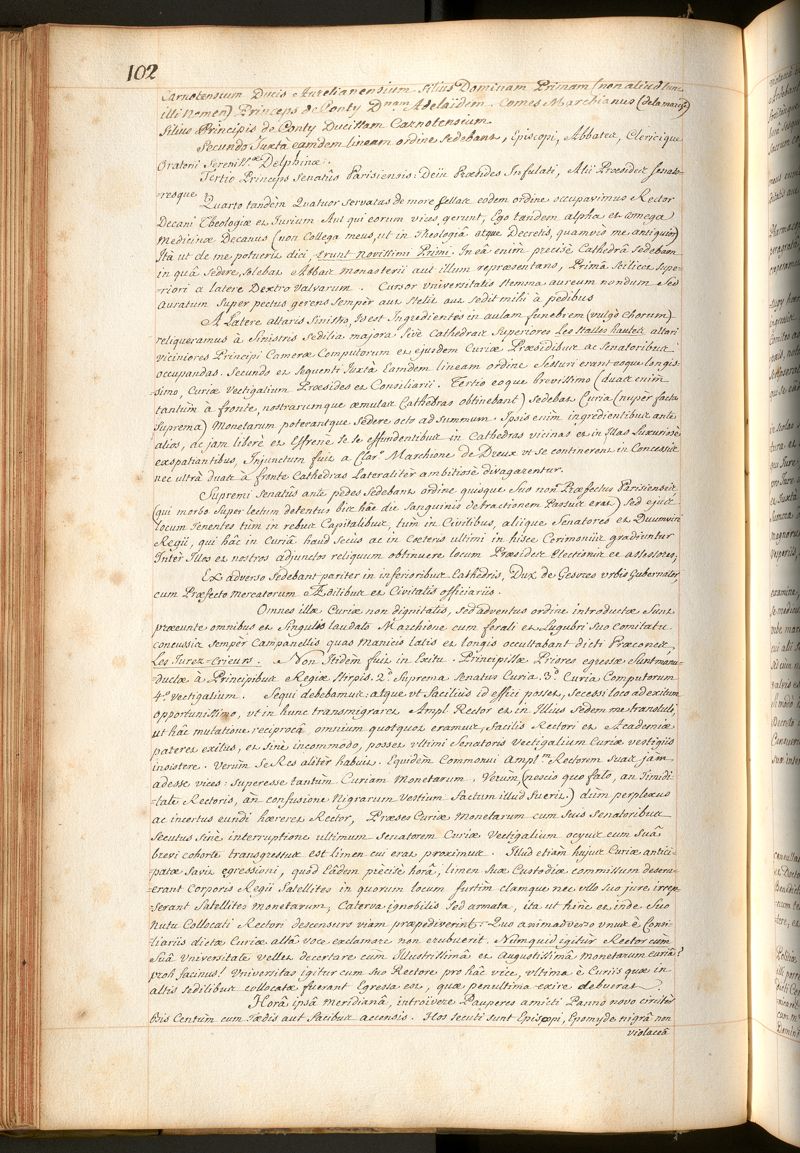 102
Carnotensium Ducis Aurelianensium filius Dominam Primam (non aliud tunc
illi nomen) Princeps de Conty Dnam Adelaidem. Comes Marchianus (de la marche)
filius Principis de Conty Ducissam Carnotensium
Secundo Juxtà eamdem lineam ordine sedebant, Episcopi, Abbates, Clericique
Oratorii Sereniss. Delphinæ.
Tertio Princeps Senatûs Parisiensis: Dein Præsides Infulati, Alii Præsides Senato-
resque
Quarto tandem Quatuor servatas de more sellas eodem ordine occupavimus Rector
Decani Theologiæ et Jurium Aut qui eorum vices gerunt, Ego tandem alpha et omega
Medicinæ Decanus (non Collega meus, ut in Theologiâ atque Decretis, quamvis me antiquior)
Ità ut de me potueris dici, erunt novissimi Primi. In eâ enim precisè Cathedrâ sedebam
in quâ sedere solebat Abbas monasterii aut illum repræsentans, Primâ scilicet supe-
-riori a latere Dextro Valvarum. Cursor Universitatis stemma aureum nondum sed
auratum super pectus gerens semper aut stetit aut sedit mihi à pedibus
A Latere altaris sinistro, id est Ingredientes in aulam funebrem (vulgò chorum)
reliqueramus à sinistris sedilia majora sivè Cathedras superiores Les stalles hautes altari
viciniores Principi Cameræ Computorum et ejusdem Curiæ Præsidibus ac Senatoribus
occupandas. Secundo et sequenti Juxtà Eamdem lineam ordine sessuri erant eoque longis-
-simo, Curiæ Vectigalium Præsides et Consiliarii. Tertio eoque brevissimo (duas enim
tantùm à fronte, nostrarumque æmulas Cathedras obtinebant) sedebat Curia (nupèr facta
Suprema) Monetarum poterantque sedere octo ad summum. Ipsis enim ingredientibus ante
alios, ac jam liberè et effrenè se se effundentibus in Cathedras vicinas et in illas luxuriosè
exspatiantibus, Injunctum fuit a Clar. Marchione de Dreux ut se continerent in Concessis
nec ultrà duas à fronte Cathedras Lateraliter ambitiosè divagarentur.
Supremi Senatûs ante pedes sedebant ordine quisque suo non Præfectus Parisiensis
(qui morbo super lectum detentus bis hâc die sanguinis detractionem passus erat) sed ejus
locum tenentes tùm in rebus Capitalibus, tùm in Civilibus, aliique Senatores et Duumviri
Regii, qui hâc in Curiâ haud secùs ac in Cæteris ultimi in hisce Cerimoniis gradiuntur
Inter Illos et nostros adjunctos reliquum obtinuere locum Præsides Electionis et assessores,
Ex adverso sedebant pariter in inferioribus Cathedris, Dux de Gesvres Urbis Gubernator,
cum Præfecto mercatorum Ædilibus et Civitatis officiariis.
Omnes illæ Curiæ non dignitatis, sed adventus ordine introductæ sunt
præeunte omnibus et singulis laudato Marchione cum ferali et lugubri suo Comitatu
concussis sempèr Campanellis quas manicis latis et longis occultabant dicti Præcones,
Les Jurez-Crieurs. Non itidem fuit in Exitu. Principissæ Priores egressæ sunt manu-
ductæ à Principibus Regiæ stirpis. 2º. Suprema Senatus Curia. 3º. Curia Computorum
4º. Vectigalium. Sequi debebamus: atque ut faciliùs id effici posset, secessi loco ad exitum
opportunissimo, ut in hunc transmigraret Ampl Rector et in illius sedem me transtuli,
ut hâc mutatione reciprocâ omnium quotquot eramus, facilis Rectori et Academiæ
pateret exitus, et sinè incommodo, posset ultimi Senatoris Vectigalium Curiæ vestigiis
insistere. Verùm se Res aliter habuit. Equidem Commonui Ampl.m Rectorem suas jàm
adesse vices: superesse tantùm Curiam Monetarum. Verùm (nescio quo fato, an timidi-
-tate Rectoris, àn confusione Nigrarum Vestium factum illud fuerit) dùm perplexus
ac incertus eundi hæreret Rector, Præses Curiæ Monetarum cum suis Senatoribus
secutus sinè interruptione ultimum Senatorem Curiæ Vectigalium ocyùs cum suâ
brevi cohorte transgressus est limen cui erat proximus. Illud etiam hujus Curiæ antici-
patæ favit egressioni, quòd eâdem precisè horâ, limen suæ Custodiæ commissum deseru-
erant Corporis Regii satellites in quorum locum furtim clamque nec ullo suo jure irrep-
-serant satellites monetarum, Caterva ignobilis sed armata, ita ut hinc et inde suo
nutu Collocati Rectori descensuro viam præpediverint. Quo animadverso unus è Consi-
liariis dictæ Curiæ altâ voce exclamare non erubuerit. Nùmquid igitur Rector cum
suâ Universitate vellet decertare cum Illustrissimâ et augustissimâ monetarum curiâ?
proh facinus! Universitas igitur cum suo Rectore pro hâc vice, ultima è Curiis quæ in
altis sedilibus collocatæ fuerant Egressa est, quæ penultima exire debuerat.
Horâ ipsâ meridianâ, introivere Pauperes amicti Panno novo circiter
Bis Centum cum tædis aut facibus accensis. Hos secuti sunt Episcopi, Epomyde nigrâ non
violaceâ